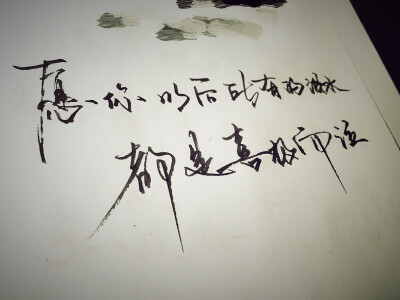 愿你以后所有的泪水
都是喜极而泣